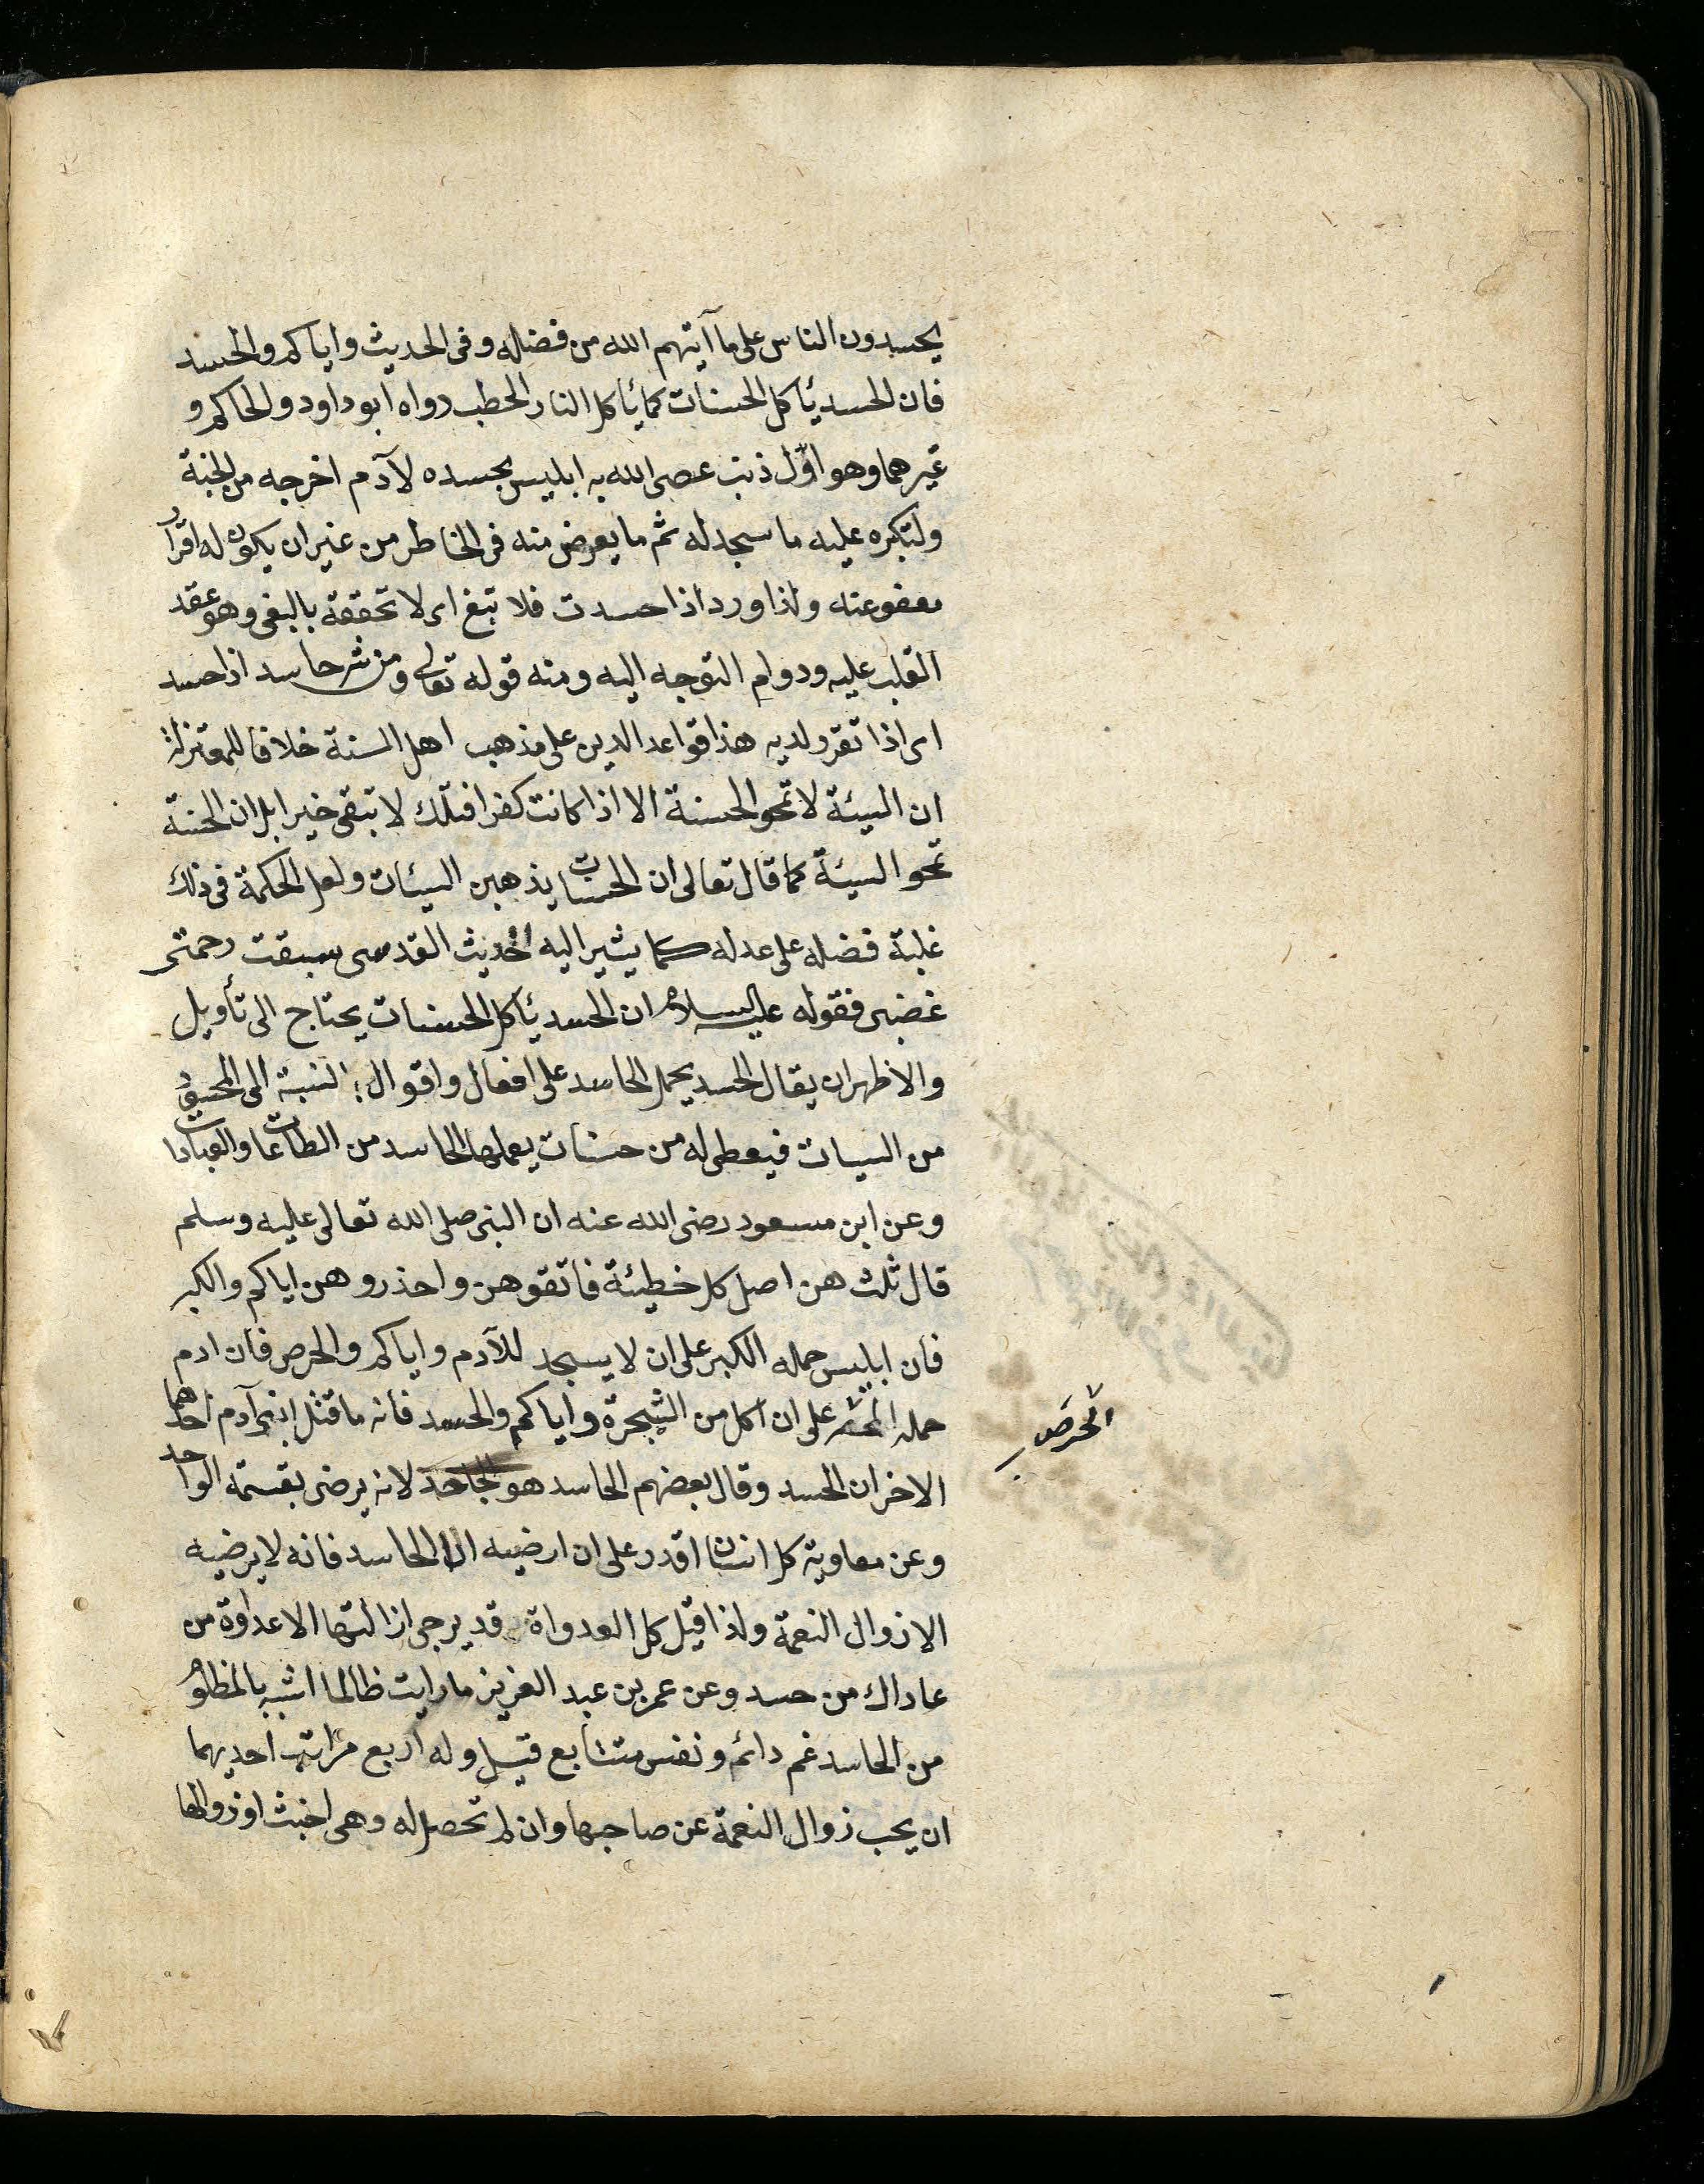 يحسدون الناس على ما آتيهم الله من فضله وفى الحديث واياكم والحسد
فان الحسد يأكل الحسنات كما يأكل النار الحطب رواه ابو داود والحاكم و
غيرهما وهو اوّل ذنب عصى الله به ابليس بحسده لآدم اخرجه من الجنة
ولتكبره عليه ما سجد له ثم ما يعرض منه فى الخاطر من غير ان يكون له اقرار
معفو عنه ولذا ورد اذا حسدت فلا تبغ اى لا تحققه بالبغى وهو عقد
القلب عليه ودوام التوجه اليه ومنه قوله تعالى ومن شر حاسد اذا حسد
اى اذا تقرر لديه هذا قواعد الدين على مذهب اهل السنة خلافا للمعتزلة
ان السيئة لا تمحو الحسنة الا اذا كانت كفرا فتلك لا تبقى خيرا بل ان الحسنة
تمحو السيئة كما قال تعالى ان الحسنات يذهبن السيئات ولعل الحكمة فى ذلك
غلبة فضله على عدله كما يشير اليه الحديث القدسى سبقت رحمتى
غضبى فقوله عليه السلام ان الحسد يأكل الحسنات يحتاج الى تأويل
والاظهر ان يقال الحسد يحمل الحاسد على افعال واقوال بالنسبة الى المحسود
من السيات فيعطى له من حسنات يعملها الحاسد من الطاعات والعبادات
وعن ابن مسعود رضى الله عنه ان النبى صلى الله تعالى عليه وسلم
قال ثلث هن اصل كل خطيئة فاتقوهن واحذروهن اياكم والكبر
فان ابليس حمله الكبر على ان لا يسجد للآدم واياكم والحرص فان ادم
حمله على ان اكل من الشجرة واياكم والحسد فانه ما قتل ابنى آدم احدهما
الحرص
الاخر ان الحسد وقال بعضهم الحاسد هو الجاحد لانه يرضى بقسمة الواحد
وعن معاوية كل انسان اقدر على ان ارضيه الا الحاسد فانه لا يرضيه
الا زوال النعمة ولذا قيل كل العدواة قد يرجى ازالتها الا عداوة من
عاداك من حسد وعن عمر بن عبد العزيز ما رايت ظالما اشبه بالمظلوم
من الحاسد غم دائم ونفس متتابع قيل وله اربع مراتب احديهما
ان يحب زوال النعمة عن صاحبها وان لم تحصل له وهى اخبث او زوالها